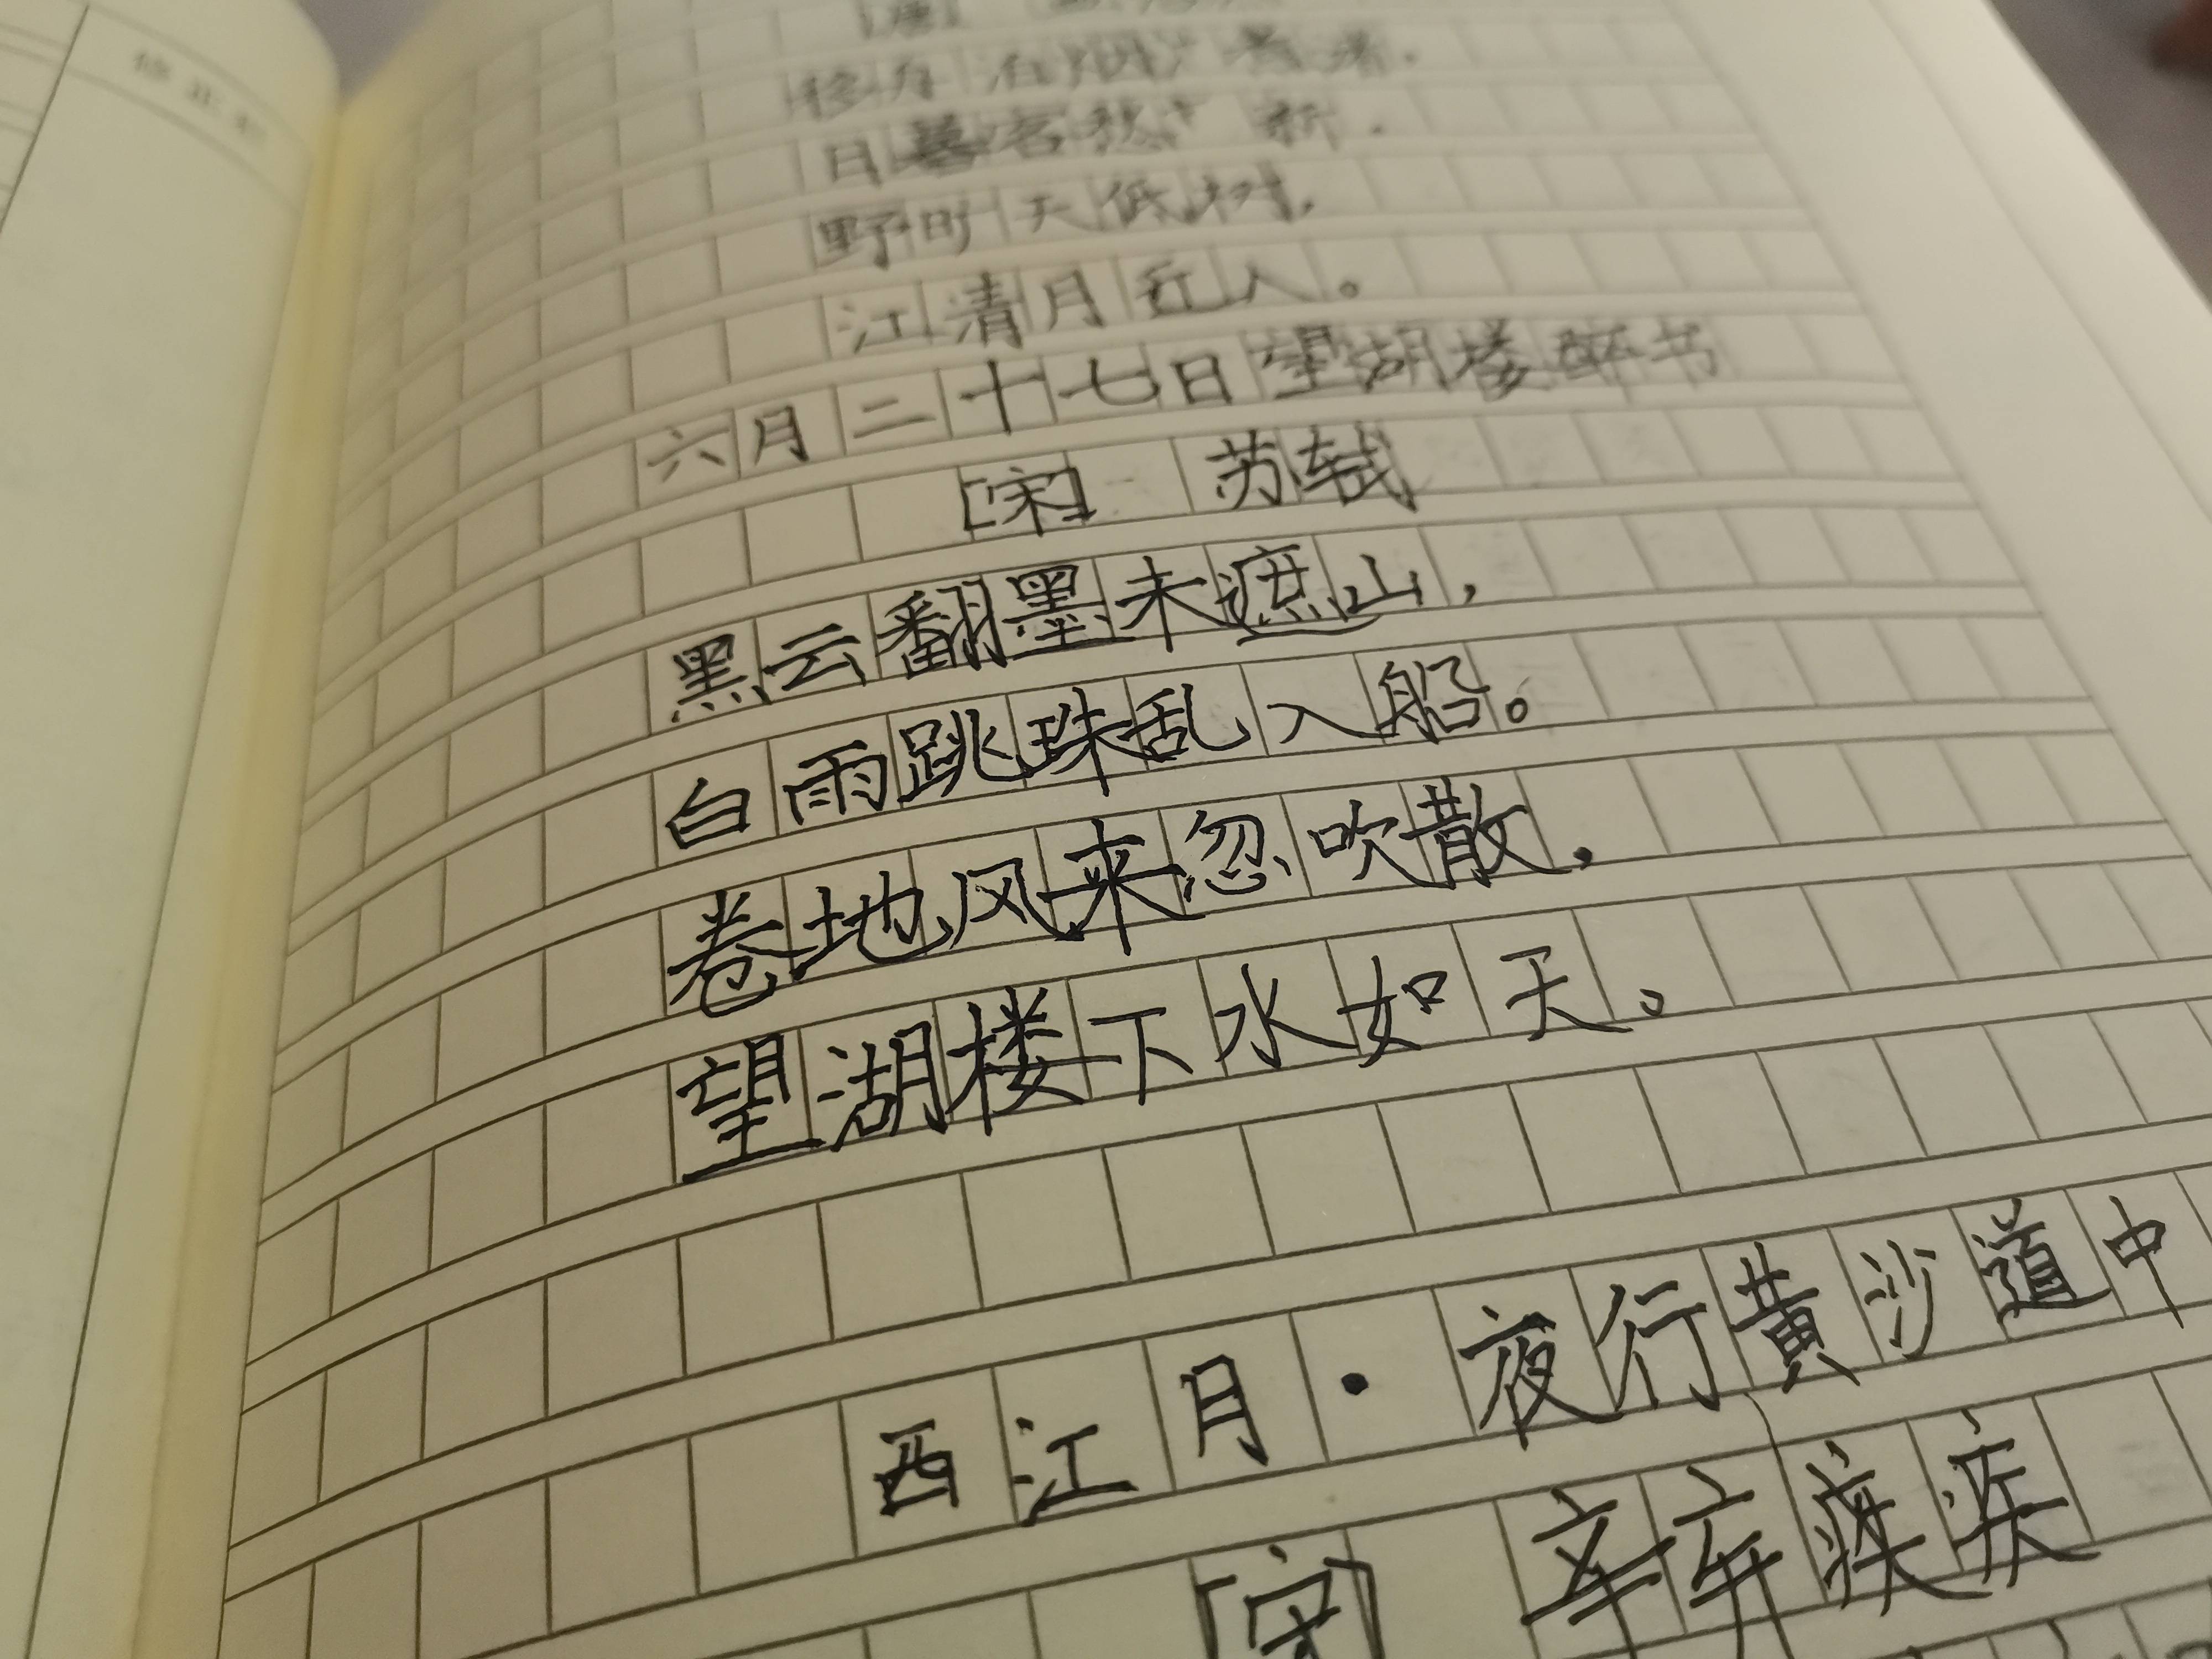 修正栏
[唐]
移舟泊烟渚,
日暮客愁新.
野旷天低树,
江清月近人。
六月二十七日望湖楼醉书
[宋] 苏轼
黑云翻墨未遮山,
白雨跳珠乱入船。
卷地风来忽吹散,
望湖楼下水如天。
西江月·夜行黄沙道中
[宋] 辛弃疾